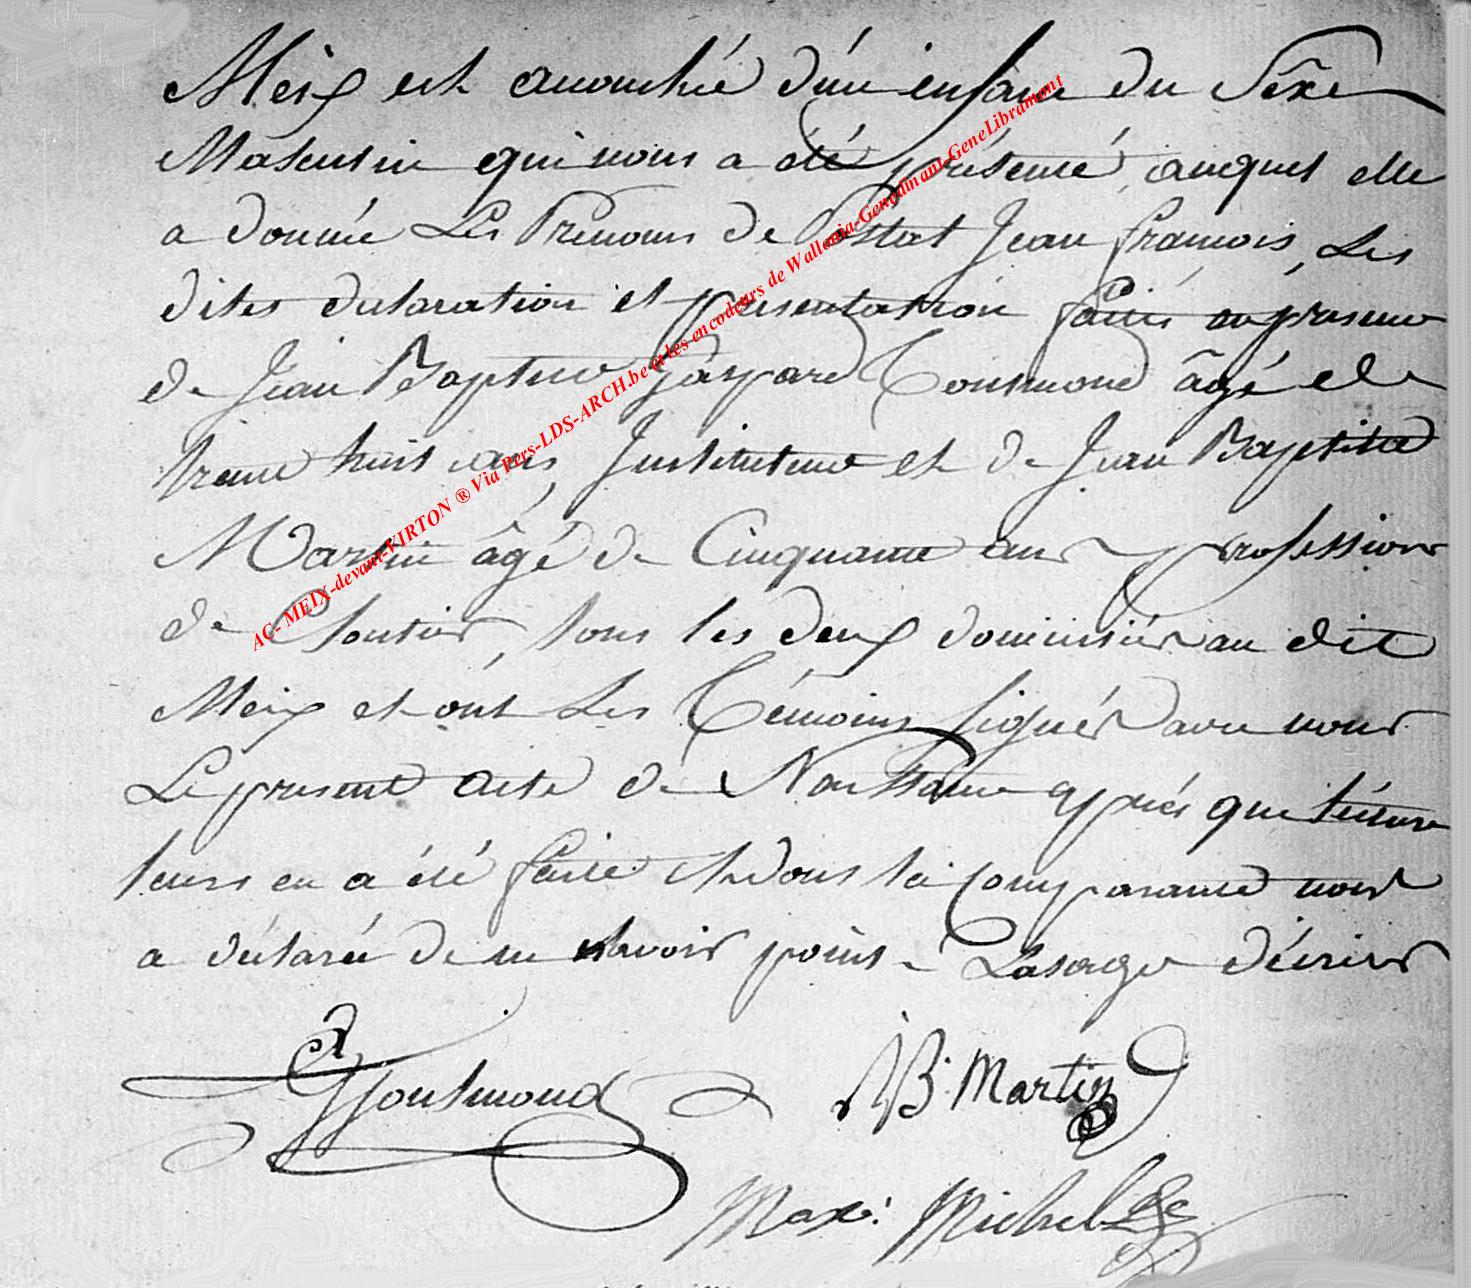 Meix est accouchée d'un enfant du Sexe
Masculin qui nous a été présenté, auquel elle
a donnée Les Prénoms de Postat Jean françois, Les
dites déclaration et présentation faites en présence
de Jean Baptiste Gaspard Toussmond âgé de
trente huit ans, Instituteur et de Jean Baptiste
Martin âgé de Cinquante ans profession
de Cloutier, tous les deux domiciliés au dit
Meix et ont Les Témoins signés avec nous
Le présent acte de Naissance après que lecture
leurs en a été faite et dont la Comparante nous
a déclaré de ne savoir point L'usage d'écrire
JB. Martin
Max. Michel
AC- MEIX-devant-VIRTON ® Via Pers-LDS-ARCH.be et les encodeurs de Wallonia-Genedinant-GeneLibramont